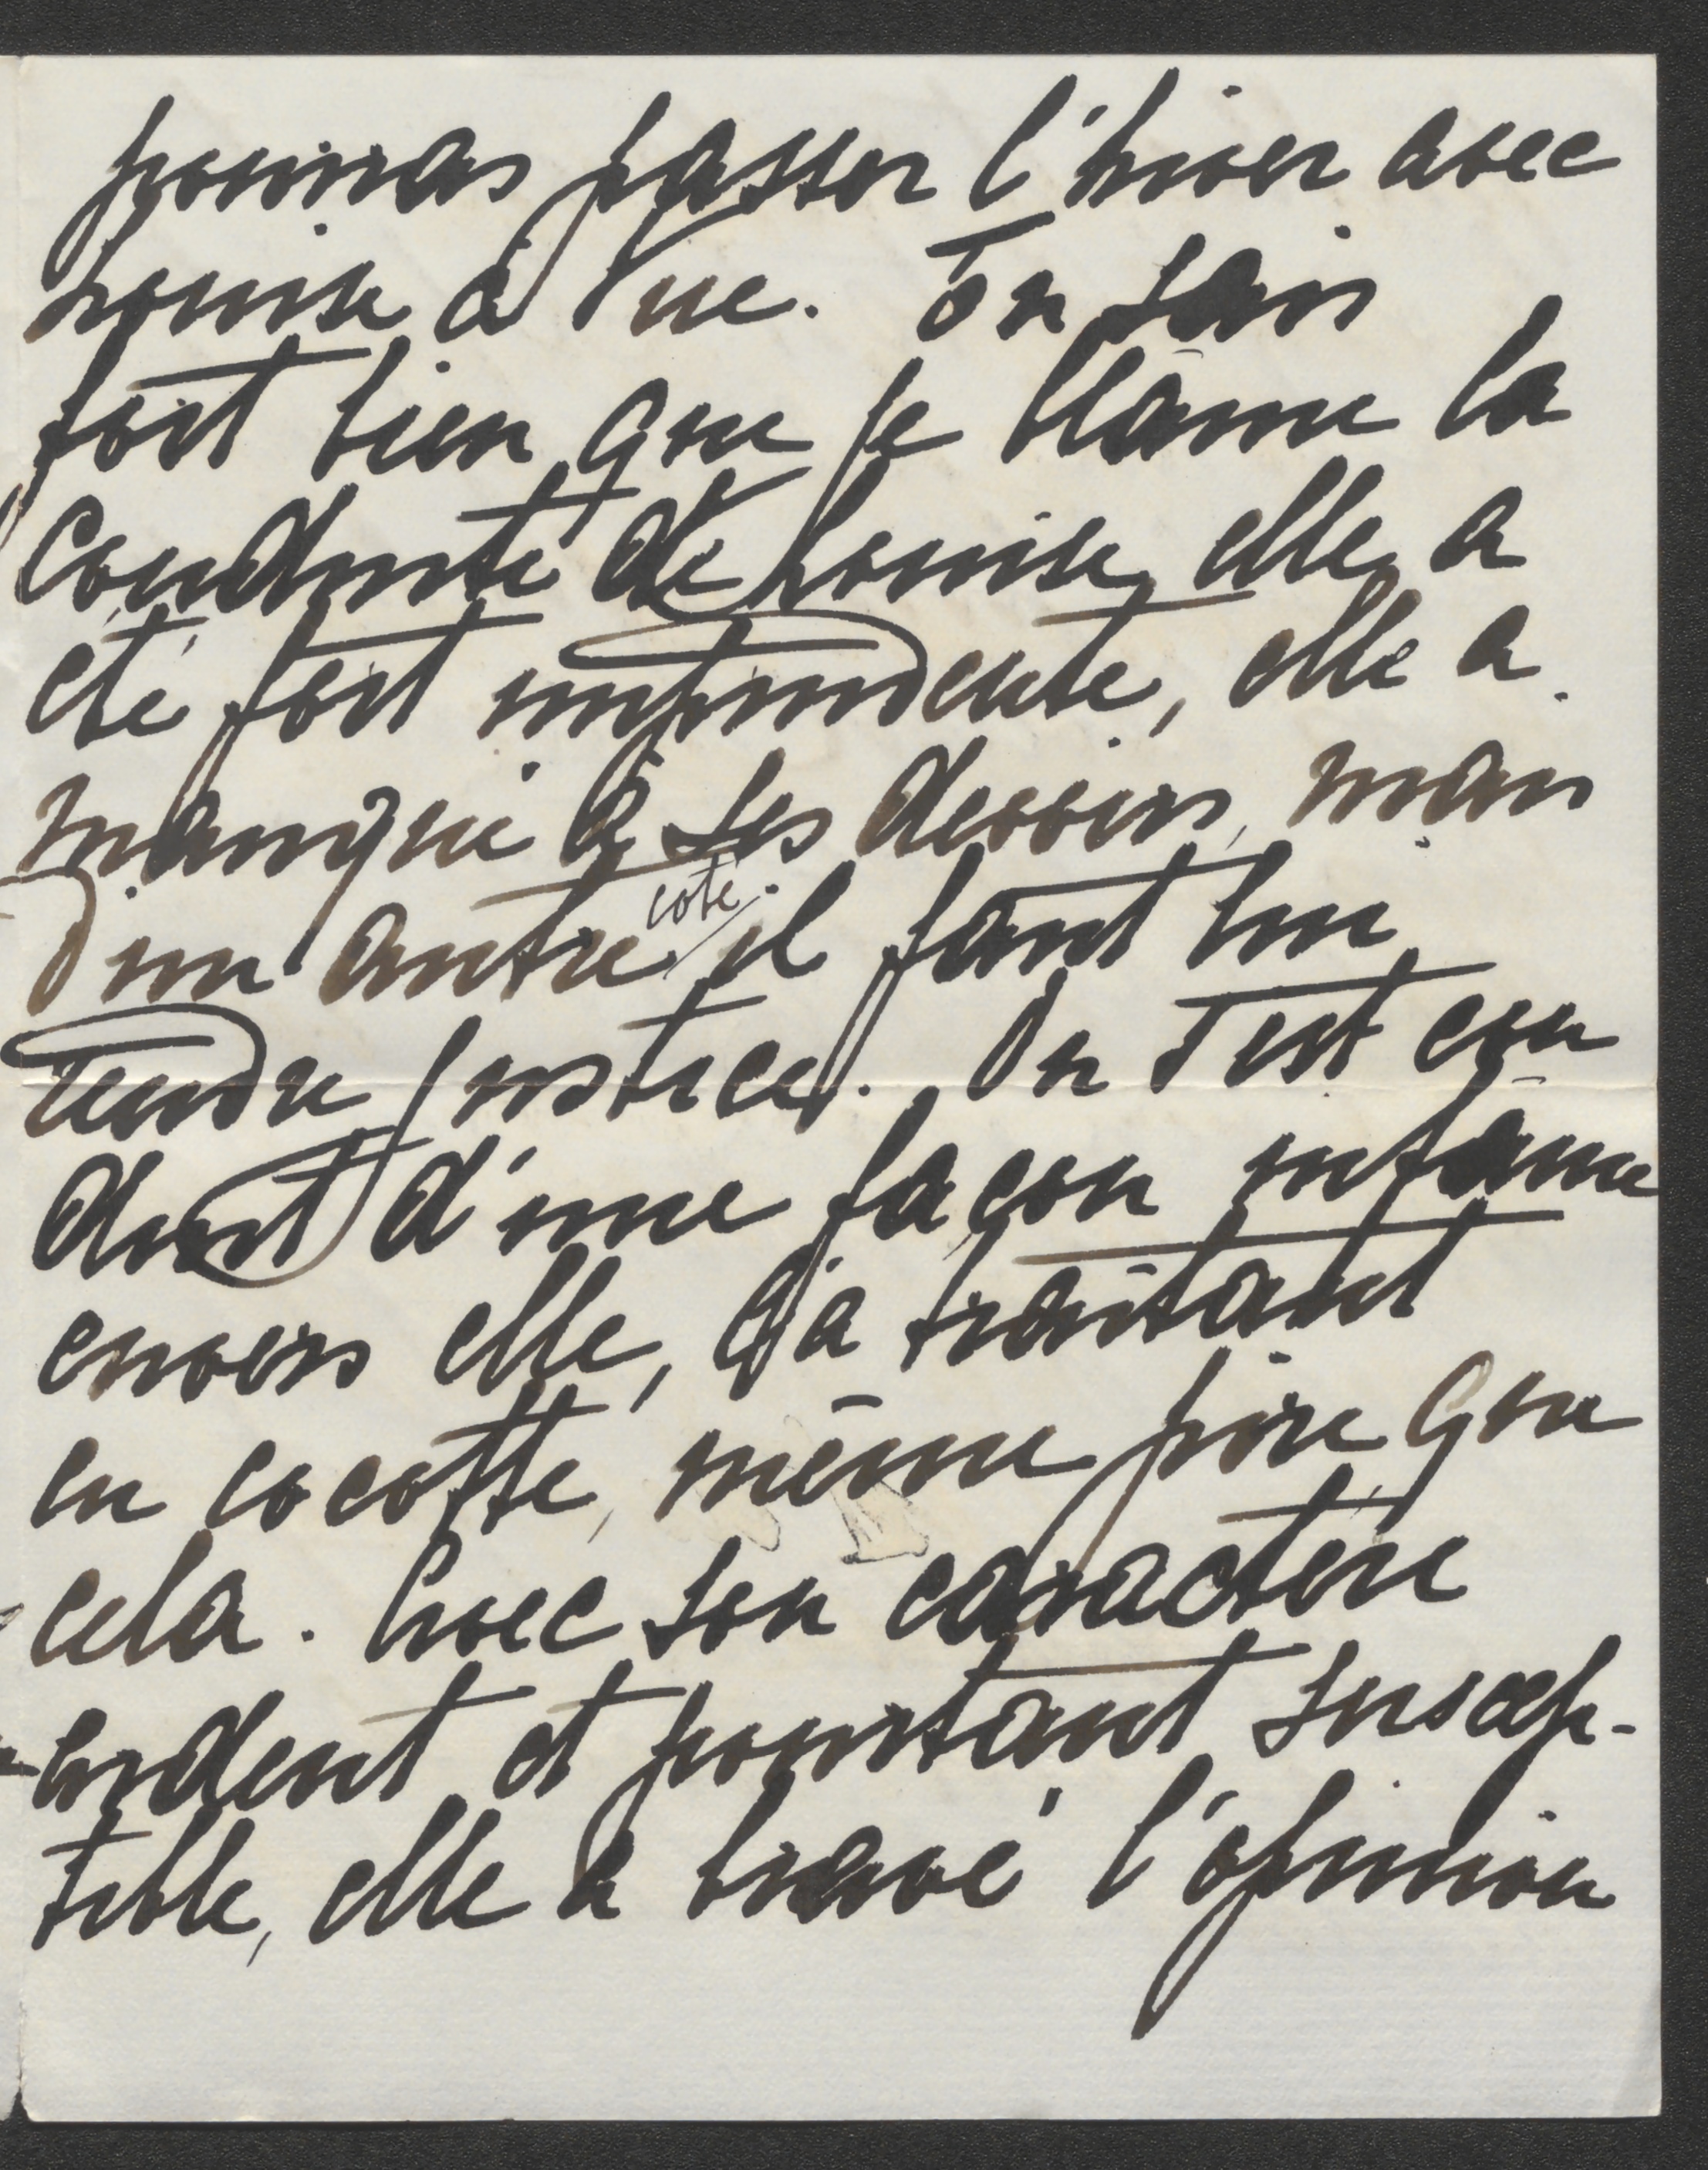 pourras passer l'hiver avec
Louise à Vue. Tu sais
fort bien que je blâme la
Conduite de Louise, elle a
été fort imprudente, elle a
manqué à ses devoirs, mais
d'un autre côté il faut lui
rendre justice. On s'est con
duit d'une façon infâme
envers elle, la traitant
en cocotte, même pire que
cela. Avec son caractère
ardent et pourtant suscep-
tible, elle a bravé l'opinion